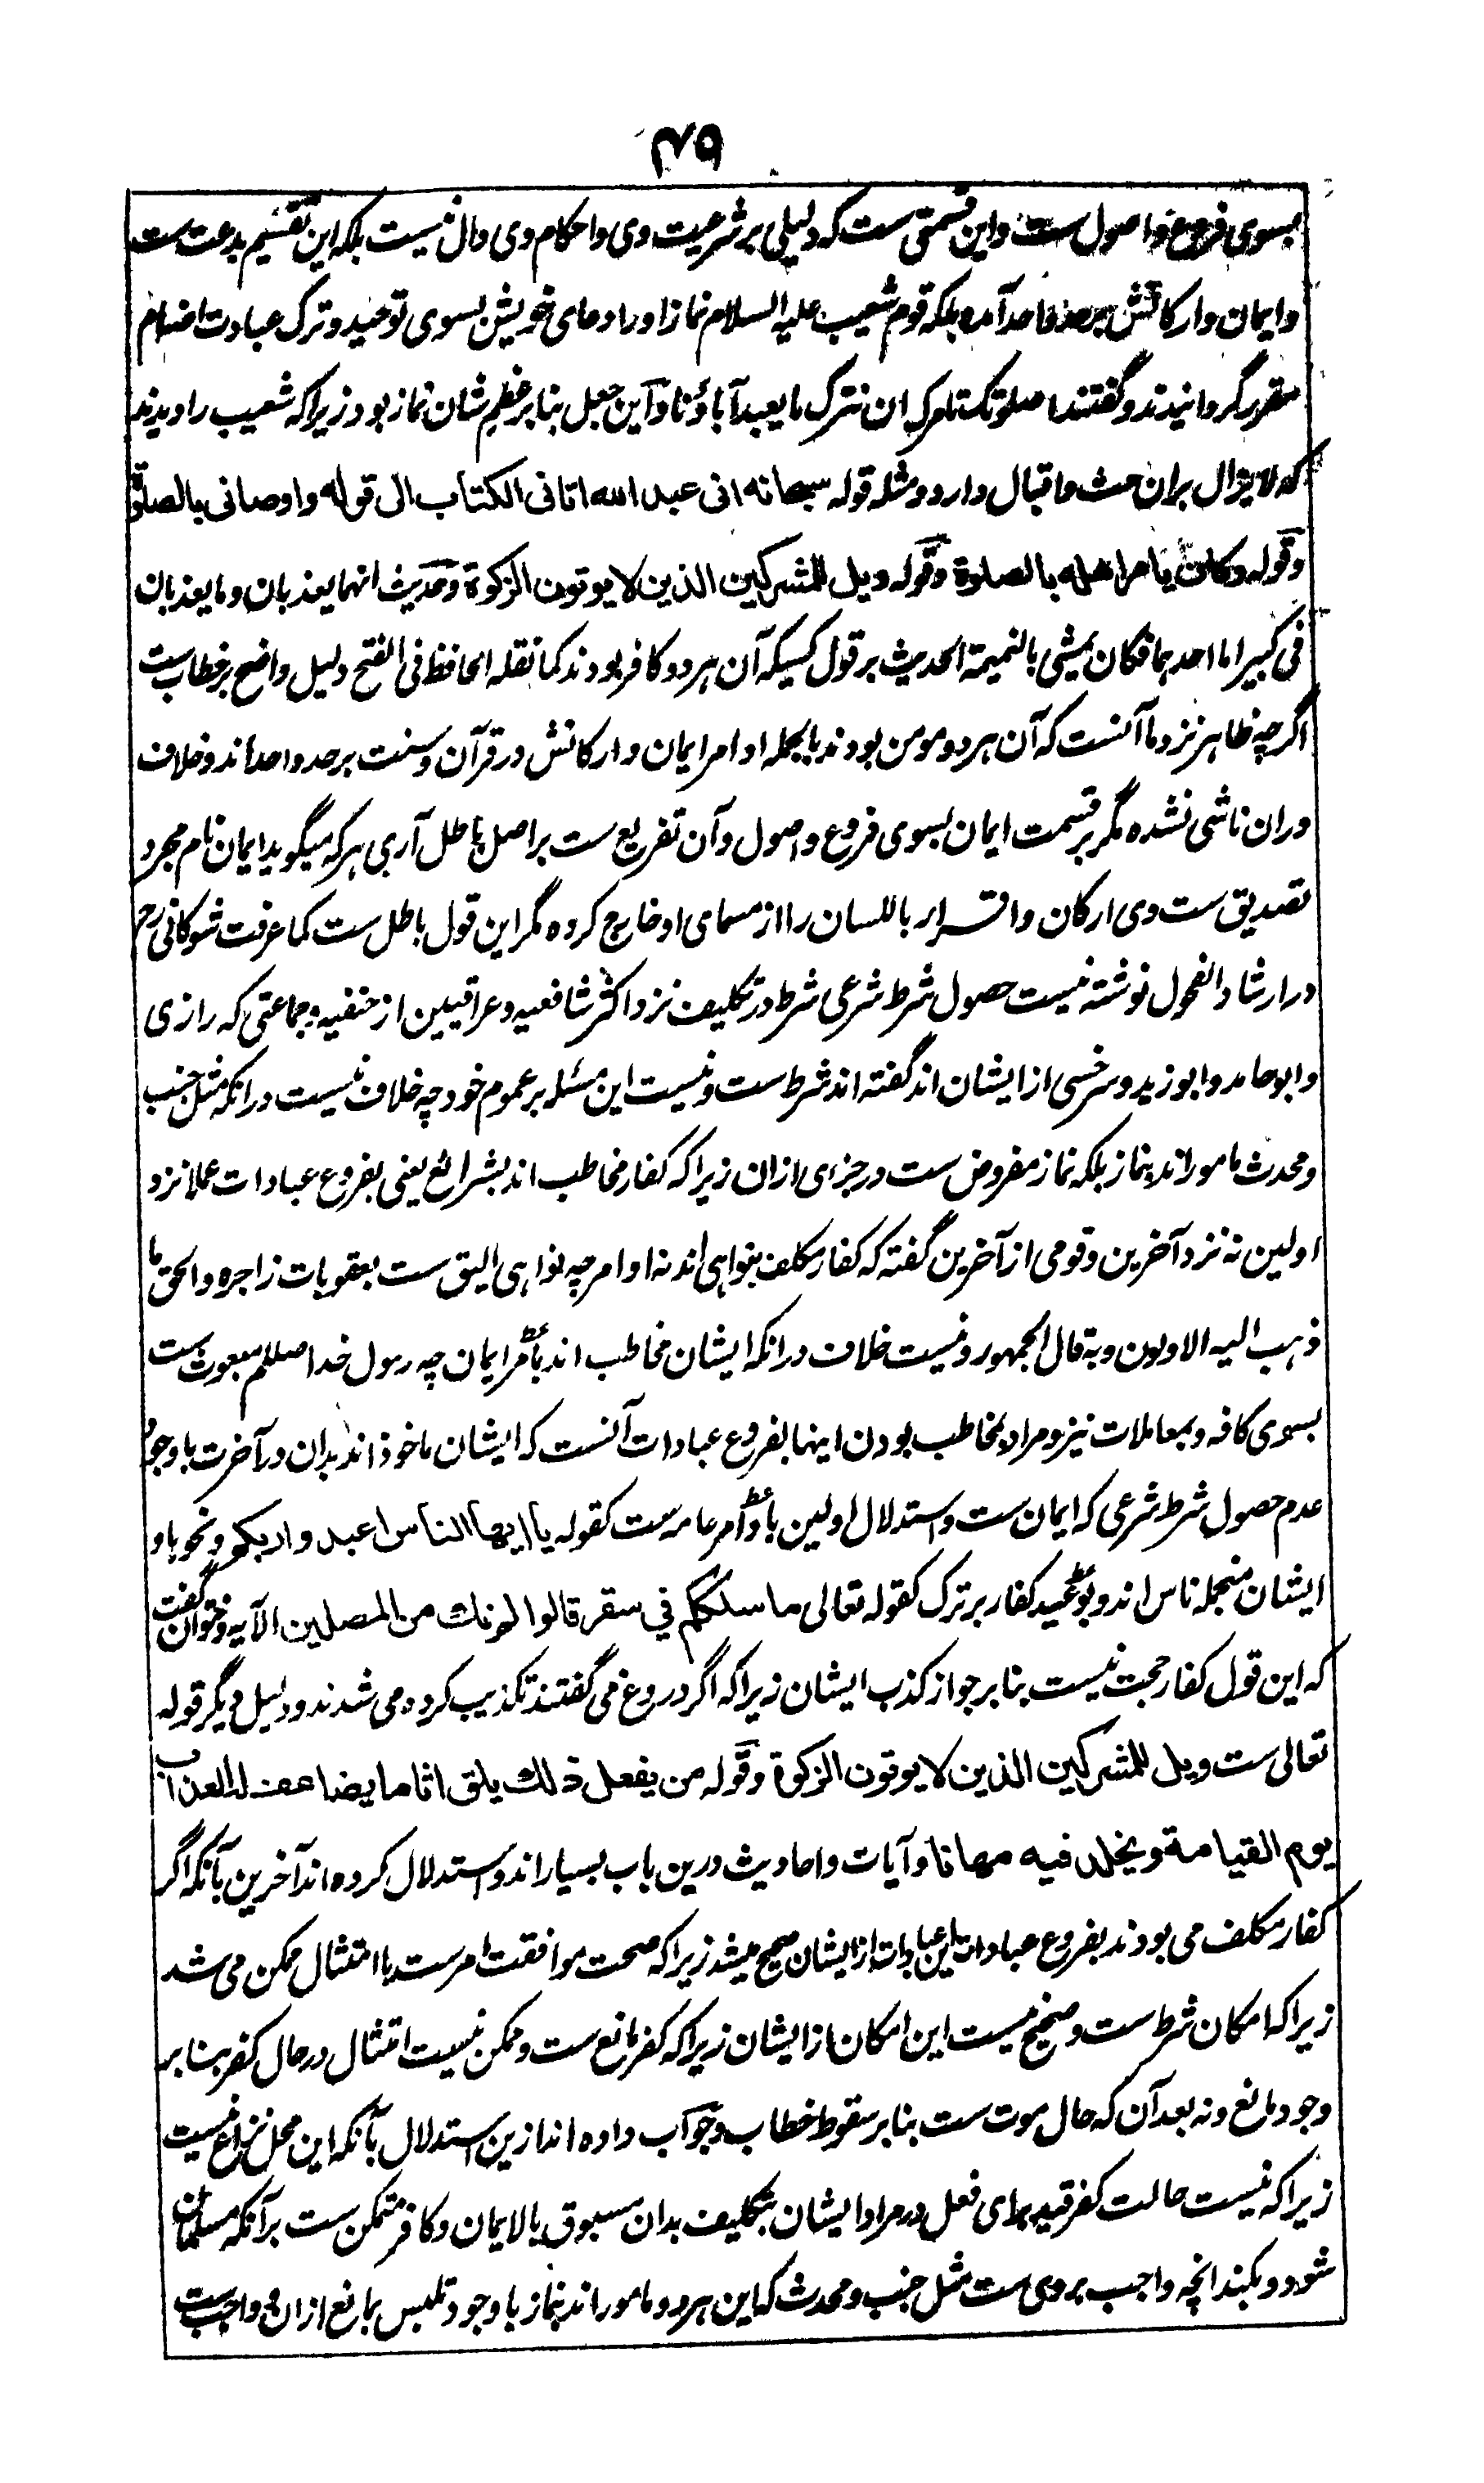 ۳۷۹
بسوی فروع و اصول ست و این قسمتی ست که دلیلی بر شرعیت وی و احکام وی دال نیست بلکه این تقسیم بدعت ست
و ایمان و ارکانش برحد واحد آمده بلکه قوم شعیب علیه السلام نماز او را دعای خویش بسوی توحید و ترک عبادت اصنام
مقرر گردانیدند و گفتند اصلوتک تامرک ان نترک ما یعبد آباؤنا و این جعل بنا بر عظم شان نماز بود زیرا که شعیب را دیدند
که لایزال بران حث و اقبال دارد و مثله قوله سبحانه انی عبد الله اتانی الکتاب الی قوله و اوصانی بالصلوٰة
و قوله و کان یامر اهله بالصلوة و قوله ویل للمشرکین الذین لا یوتون الزکوة و حدیث انهما یعذبان و ما یعذبان
فی کبیر اما احدهما فکان یمشی بالنمیمة الحدیث بر قول کسیکه آن هر دو کافر بودند کما نقله الحافظ فی الفتح دلیل واضح بر خطاب ست
اگرچه ظاهر نزد ما آنست که آن هر دو مومن بودند بالجمله اوامر ایمان و ارکانش در قرآن و سنت برحد واحد اند و خلاف
دران ناشی نشده مگر بر قسمت ایمان بسوی فروع و اصول و آن تفریع ست بر اصل باطل آری هر که میگوید ایمان نام مجرد
تصدیق ست وی ارکان و اقرار باللسان را از مسمای او خارج کرده مگر این قول باطل ست کما عرفت شوکانی رح
در ارشاد الفحول نوشته نیست حصول شرط شرعی شرط در تکلیف نزد اکثر شافعیه و عراقیین از حنفیه و جماعتی که رازی
و ابو حامد و ابو زید و سرخسی از ایشان اند گفته اند شرط ست و نیست این مسئله بر عموم خود چه خلاف نیست درانکه مثل جنب
و محدث مامور اند بنماز بلکه نماز مفروض ست در جزای ازان زیرا که کفار مخاطب اند بشرائع یعنی بفروع عبادات عملا نزد
اولین نه نزد آخرین و قومی از آخرین گفته که کفار مکلف بنواهی اند نه اوامر چه نواهی الیق ست بعقوبات زاجره و الحق ما
ذهب الیه الاولون و به قال الجمهور و نیست خلاف درانکه ایشان مخاطب اند بامر ایمان چه رسول خدا صللم مبعوث ست
بسوی کافه و بمعاملات نیز و مراد بمخاطب بودن اینها بفروع عبادات آنست که ایشان ماخوذ اند بدان در آخرت با وجود
عدم حصول شرط شرعی که ایمان ست و استدلال اولین باوامر عامه ست کقوله یا ایها الناس اعبدوا ربکم و نحوها و
ایشان منجمله ناس اند و بوعید کفار بر ترک کقوله تعالی ما سلککم فی سقر قالوا لم نک من المصلین الآیه و نتوان گفت
که این قول کفار حجت نیست بنا بر جواز کذب ایشان زیرا که اگر دروغ می گفتند تکذیب کرده می شدند و دلیل دیگر قوله
تعالی ست ویل للمشرکین الذین لا یوتون الزکوة و قوله من یفعل ذلک یلق اثاما یضاعف له العذاب
یوم القیامة و یخلد فیه مهانا و آیات و احادیث درین باب بسیار اند و استدلال کرده اند آخرین بآنکه اگر
کفار مکلف می بودند بفروع عبادات این عبادات از ایشان صحیح میشد زیرا که صحت موافقت امر ست یا امتثال ممکن می شد
زیرا که امکان شرط ست و صحیح نیست این امکان از ایشان زیرا که کفر مانع ست و ممکن نیست امتثال در حال کفر بنا بر
وجود مانع و نه بعد آن که حال موت ست بنا بر سقوط خطاب و جواب داده اند ازین استدلال بآنکه این محل نزاع نیست
زیرا که نیست حالت کفر قید برای فعل در مراد ایشان بتکلیف بدان مسبوق بالایمان و کافر متمکن ست برآنکه مسلمان
شود و بکند انچه واجب بر وی ست مثل جنب و محدث که این هر دو مامور اند بنماز با وجود تلبس بمانع ازان و واجب ست